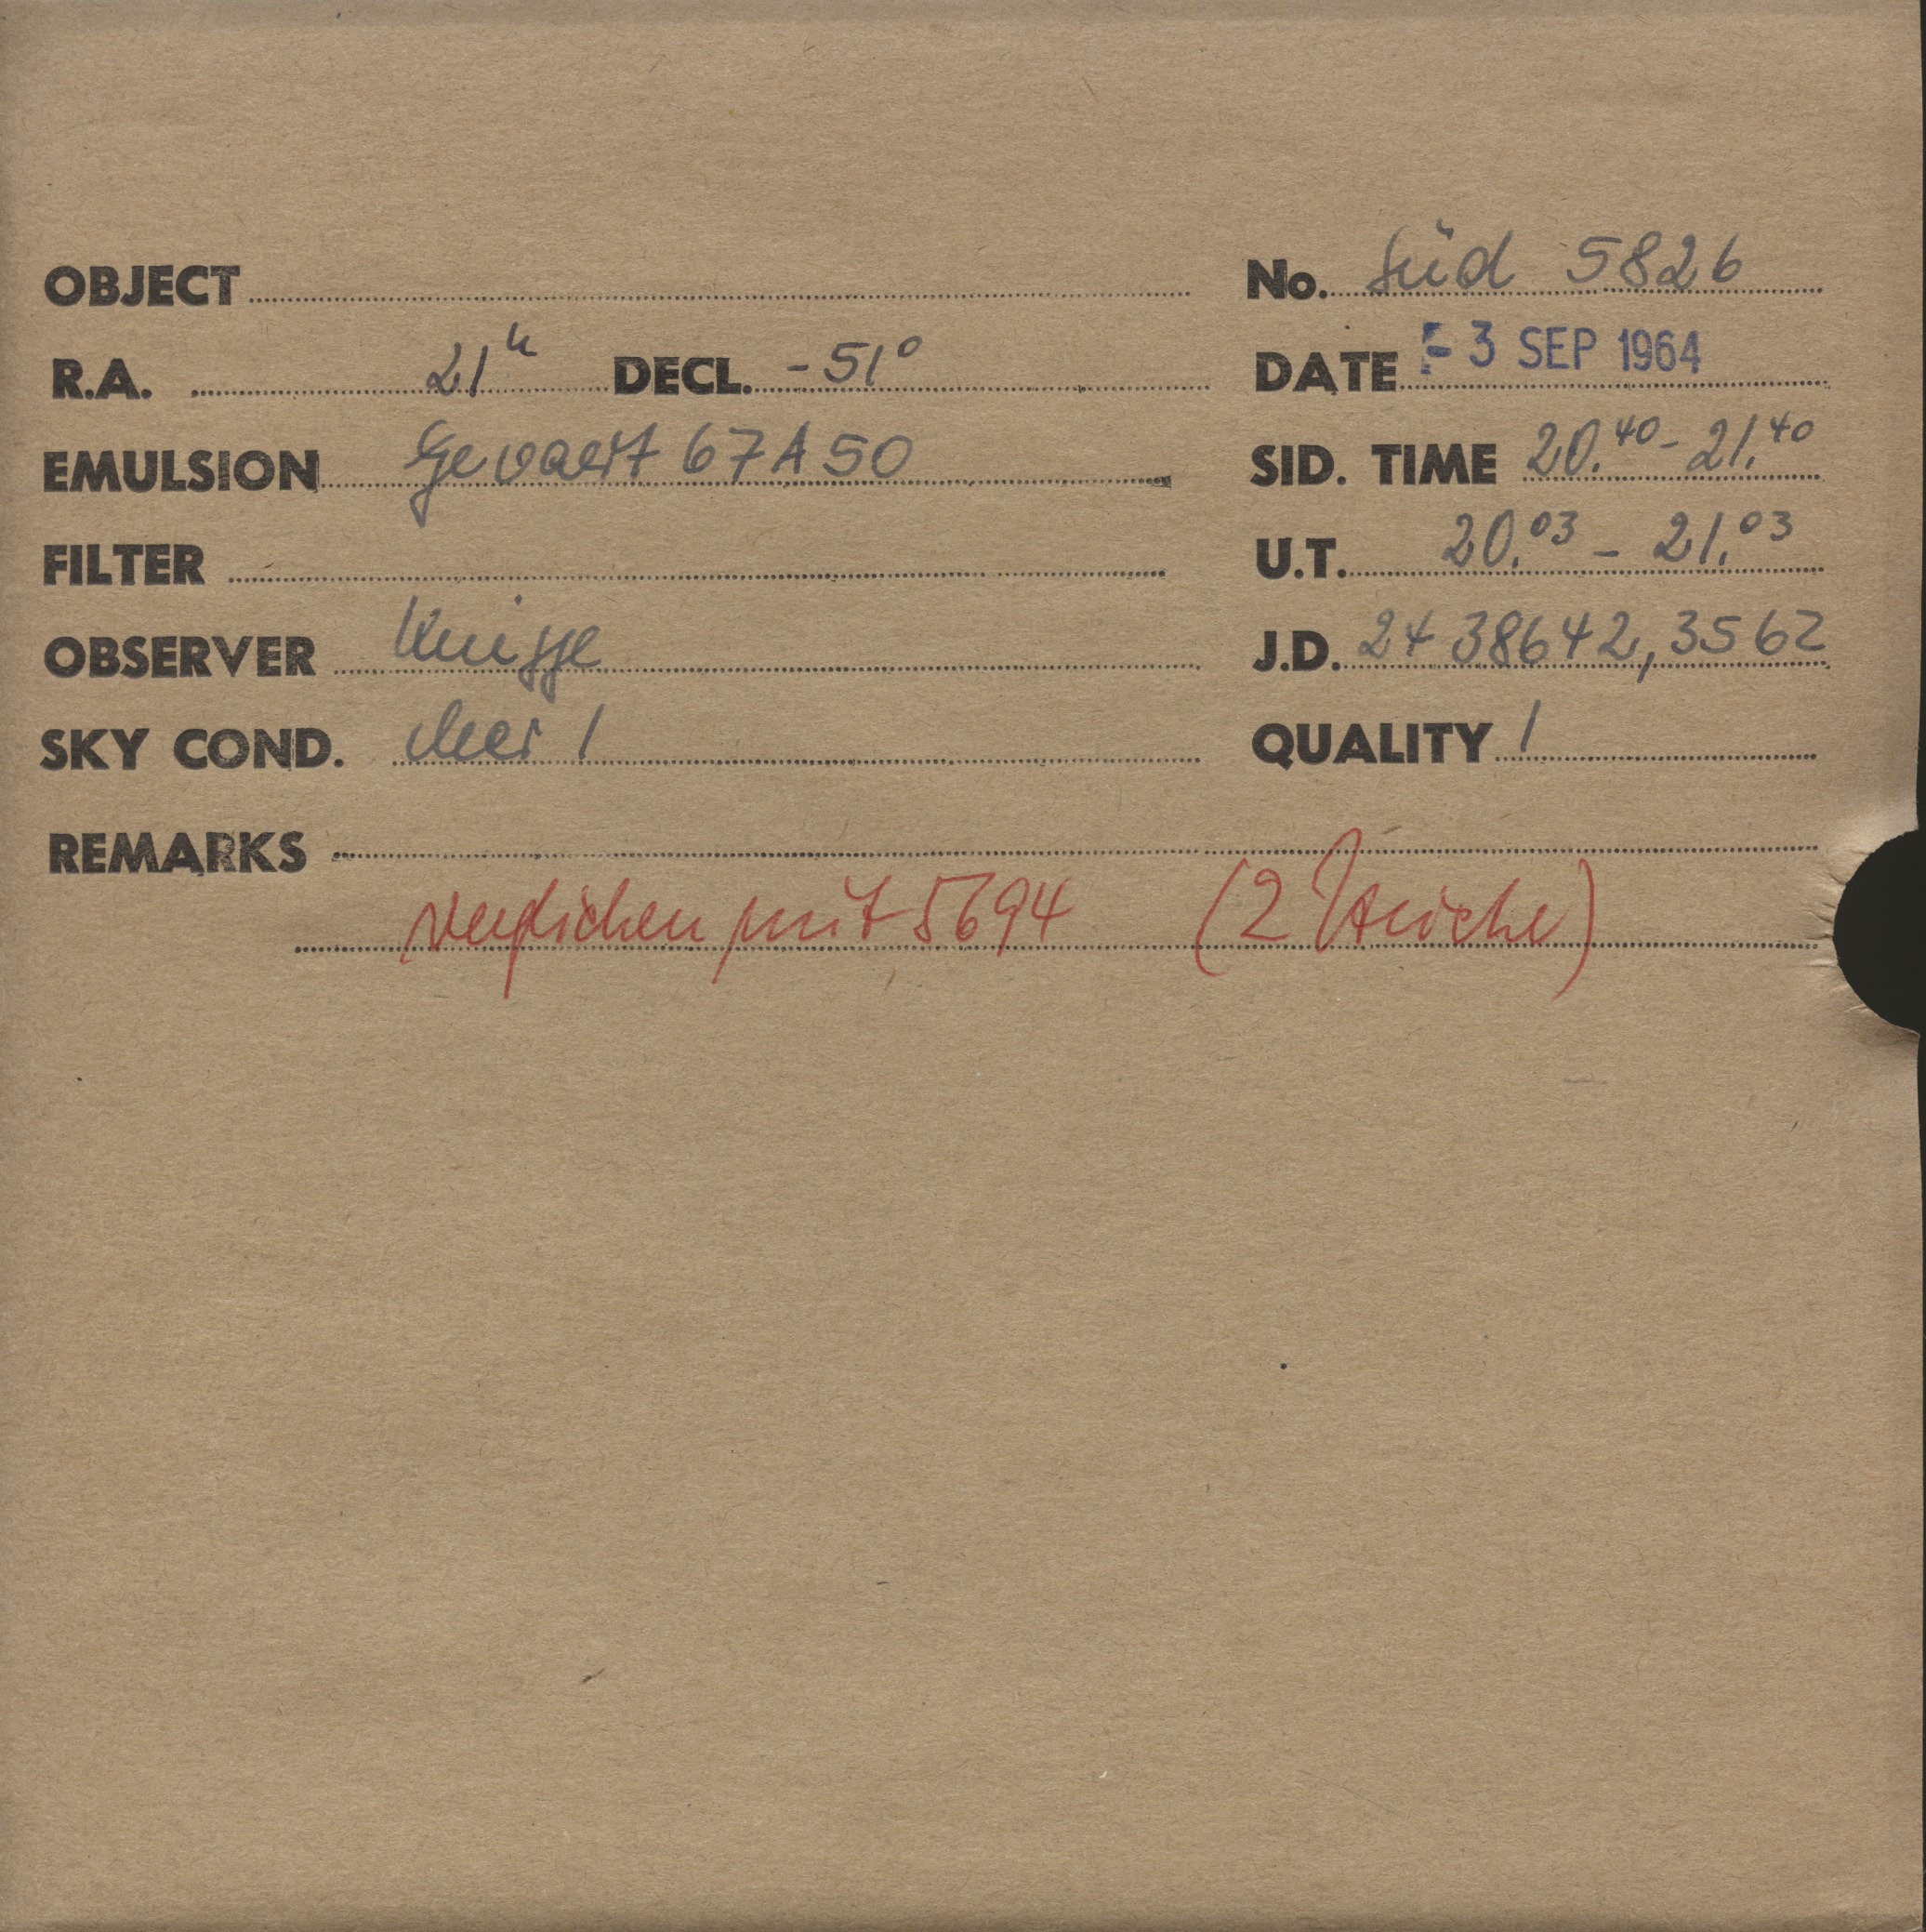 OBJECT No. Süd 5826
R.A. 21h DECL. -51° DATE - 3 SEP 1964
EMULSION Gevaert 67A50 SID. TIME 20.40 - 21.40
FILTER U.T. 20.03 - 21.03
OBSERVER Knigge J.D. 24 38642,3562
SKY COND. clear 1 QUALITY 1
REMARKS
verglichen mit 5694 (2 Striche)